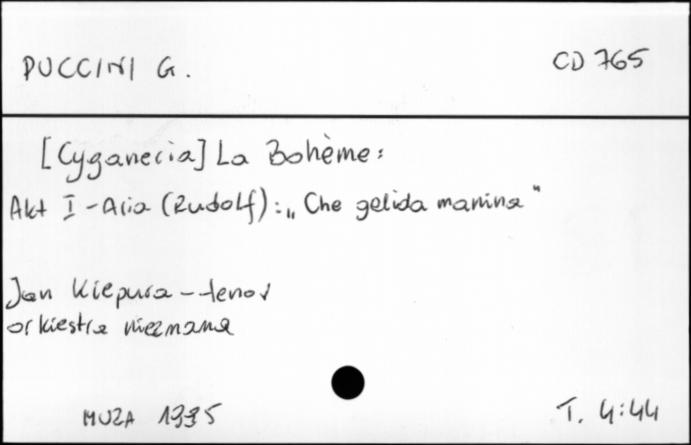 PUCCINI G.
CD 765
[Cyganecia] La Bohème:
Akt I - Aria (Rudolf): „Che gelida manina"
Jan Kiepura - tenor
orkiestra nieznana
MUZA 1995
T. 4:44